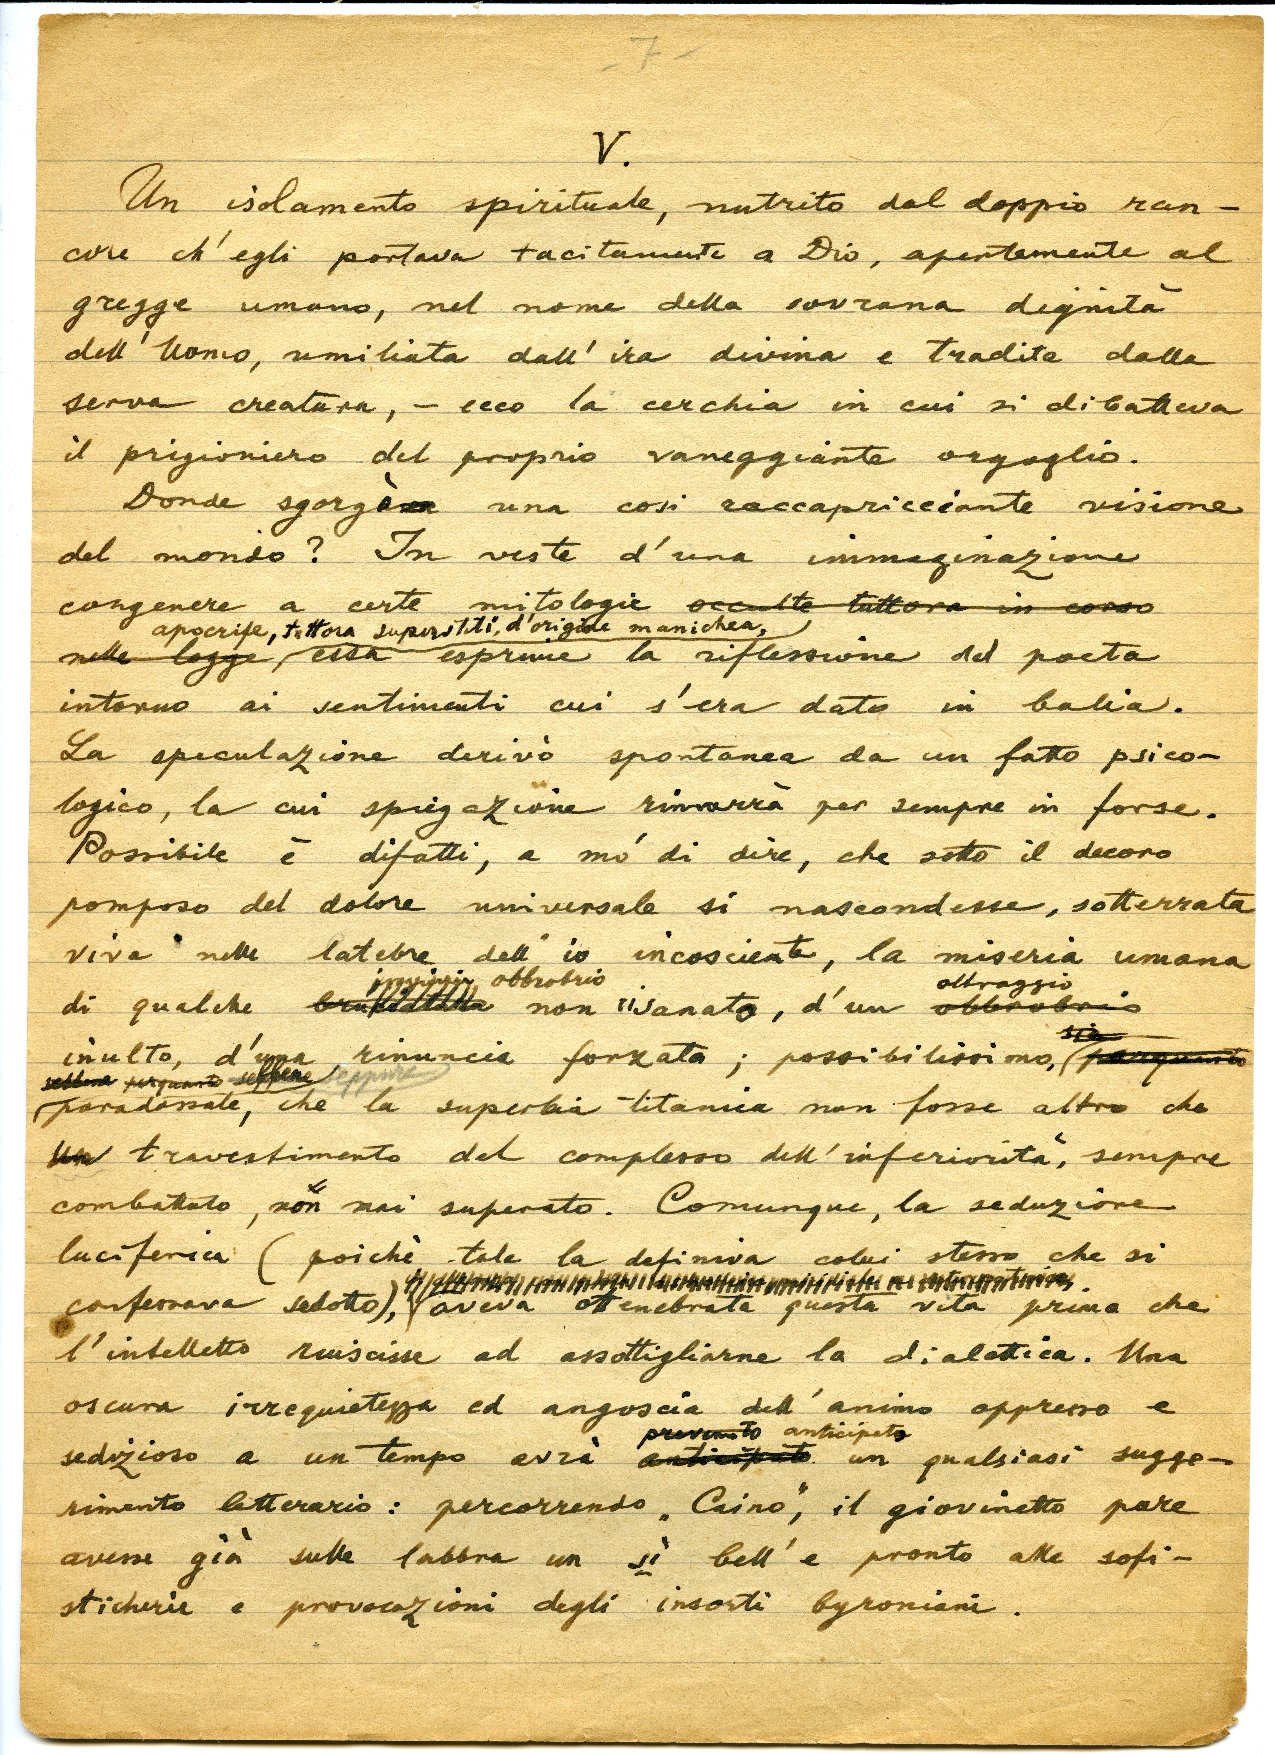 - 7 -
V.
Un isolamento spirituale, nutrito dal doppio ran-
core ch'egli portava tacitamente a Dio, apertamente al
gregge umano, nel nome della sovrana dignità
dell'Uomo, umiliata dall'ira divina e tradita dalla
serva creatura, - ecco la cerchia in cui si dibatteva
il prigioniero del proprio vaneggiante orgoglio.
Donde sgorgò una così raccapricciante visione
del mondo? In veste d'una immaginazione
congenere a certe mitologie occulte tuttora in corso
apocrife, tuttora superstiti, d'origine manichea,
nelle logge, essa esprime la riflessione del poeta
intorno ai sentimenti cui s'era dato in balia.
La speculazione derivò spontanea da un fatto psico-
logico, la cui spiegazione rimarrà per sempre in forse.
Possibile è difatti, a mo' di dire, che sotto il decoro
pomposo del dolore universale si nascondesse, sotterrata
viva nelle latebre dell'io incosciente, la miseria umana
obbrobrio oltraggio
di qualche non risanato, d'un obbrobrio
sia
inulto, d'una rinuncia forzata; possibilissimo, perquanto
sebbene perquanto seppure seppure
paradossale, che la superbia titanica non fosse altro che
un travestimento del complesso dell'inferiorità, sempre
combattuto, non mai superato. Comunque, la seduzione
luciferica (poichè tale la definiva colui stesso che si
confessava sedotto), aveva ottenebrata questa vita prima che
l'intelletto riuscisse ad assottigliarne la dialettica. Una
oscura irrequietezza ed angoscia dell'animo oppresso e
prevenuto anticipato
sedizioso a un tempo avrà anticipato un qualsiasi sugge-
rimento letterario: percorrendo „Caino", il giovinetto pare
avesse già sulle labbra un sì bell'e pronto alle sofi-
sticherie e provocazioni degli insorti byroniani.